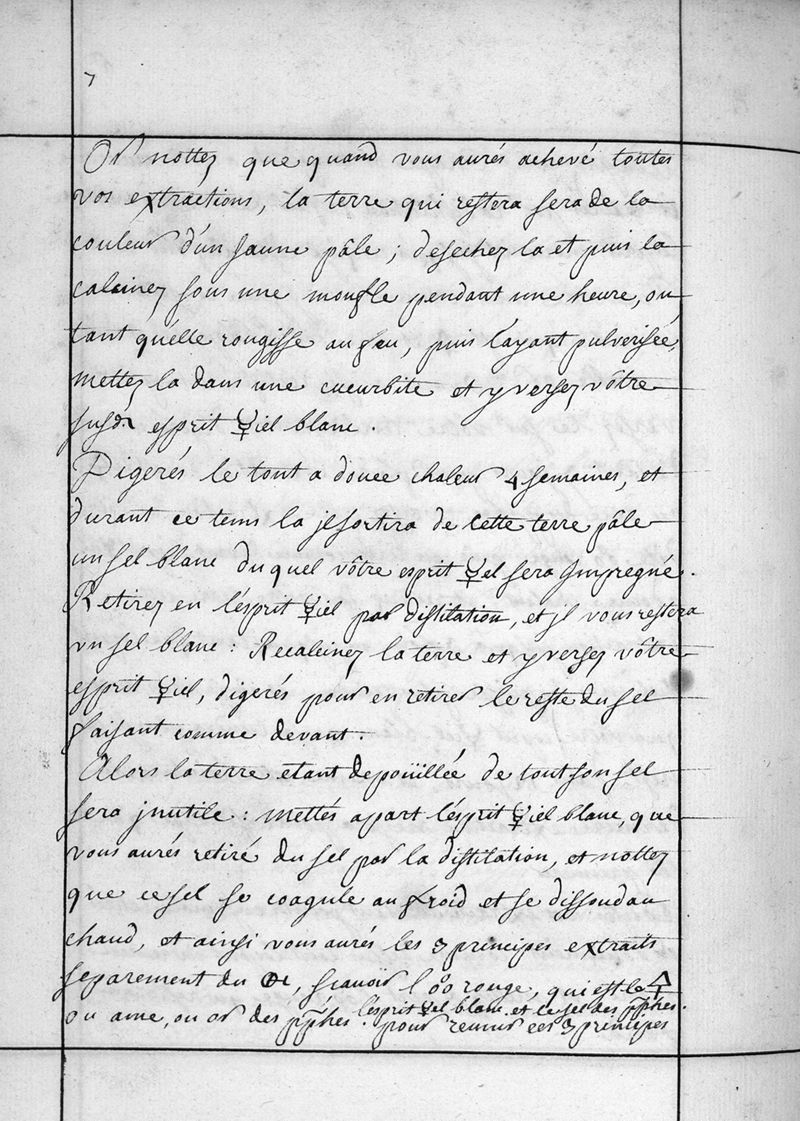 7
Or nottez que quand vous aurés achevé toutes
vos extractions, la terre qui restera sera de la
couleur d'un Jaune pâle ; desechez la et puis la
calcinez sous une moufle pendant une heure, ou
tant qu'elle rougisse au feu, puis l'ayant pulverisée,
mettez la dans une cucurbite et y versez vôtre
susdt esprit ☿iel blanc .
Digerés le tout a douce chaleur 4 semaines, et
durant ce tems la jl sortira de cette terre pâle
un sel blanc du quel vôtre esprit ☿el sera Jmpregné .
Retirez en l'esprit ☿iel par distilation, et jl vous restera
un sel blanc : Recalcinez la terre et y versez vôtre
esprit ☿iel, digerés pour en retirer le reste du sel
faisant comme devant .
Alors la terre etant depoüillée de tout son sel
sera jnutile : mettés apart l'esprit ☿iel blanc, que
vous aurés retiré du sel par la distilation, et nottez
que ce sel se coagule au froid et se dissoud au
chaud, et ainsi vous aurés les 3 principes extraits
separement du , scavoir l' rouge, qui est le 🜍
ou ame, ou or des pphes . l'esprit ☿el blanc . et le sel des pphes .
pour reunir ces 3 principes